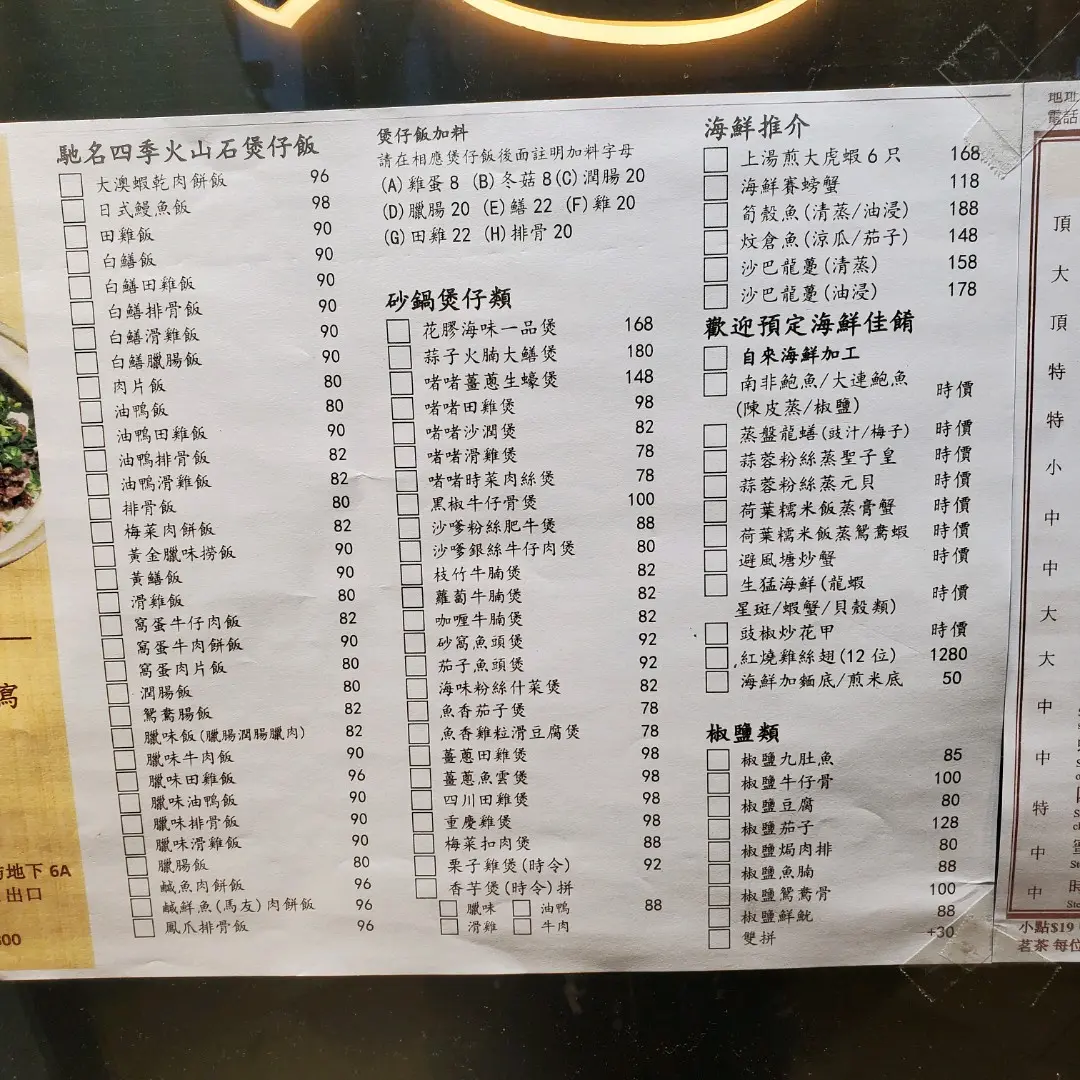 馳名四季火山石煲仔飯
大澳蝦乾肉餅飯 96
日式鰻魚飯 98
田雞飯 90
白鱔飯 90
白鱔田雞飯 90
白鱔排骨飯 90
白鱔滑雞飯 90
白鱔臘腸飯 90
肉片飯 80
油鴨飯 80
油鴨田雞飯 90
油鴨排骨飯 82
油鴨滑雞飯 82
排骨飯 80
梅菜肉餅飯 82
黃金臘味捞飯 90
黃鱔飯 90
滑雞飯 80
窩蛋牛仔肉飯 82
窩蛋牛肉餅飯 90
窩蛋肉片飯 80
潤腸飯 80
鴛鴦腸飯 82
臘味飯(臘腸潤腸臘肉) 82
臘味牛肉飯 90
臘味田雞飯 96
臘味油鴨飯 90
臘味排骨飯 90
臘味滑雞飯 90
臘腸飯 80
鹹魚肉餅飯 96
鹹鮮魚(馬友)肉餅飯 96
鳳爪排骨飯 96
煲仔飯加料
請在相應煲仔飯後面註明加料字母
(A)雞蛋8 (B)冬菇8(C)潤腸20
(D)臘腸20 (E)鱔22 (F)雞20
(G)田雞22 (H)排骨20
砂鍋煲仔類
花膠海味一品煲 168
蒜子火腩大鱔煲 180
啫啫薑蔥生蠔煲 148
啫啫田雞煲 98
啫啫沙潤煲 82
啫啫滑雞煲 78
啫啫時菜肉絲煲 78
黑椒牛仔骨煲 100
沙嗲粉絲肥牛煲 88
沙嗲銀絲牛仔肉煲 80
枝竹牛腩煲 82
蘿蔔牛腩煲 82
咖喱牛腩煲 82
砂窩魚頭煲 92
茄子魚頭煲 92
海味粉絲什菜煲 82
魚香茄子煲 78
魚香雞粒滑豆腐煲 78
薑蔥田雞煲 98
薑蔥魚雲煲 98
四川田雞煲 98
重慶雞煲 98
梅菜扣肉煲 88
栗子雞煲(時令) 92
香芋煲(時令)拼 88
臘味 油鴨
滑雞 牛肉
海鮮推介
上湯煎大虎蝦6只 168
海鮮賽螃蟹 118
筍殼魚(清蒸/油浸) 188
炆倉魚(涼瓜/茄子) 148
沙巴龍躉(清蒸) 158
沙巴龍躉(油浸) 178
歡迎預定海鮮佳餚
自來海鮮加工
南非鮑魚/大連鮑魚 時價
(陳皮蒸/椒鹽)
蒸盤龍鱔(豉汁/梅子) 時價
蒜蓉粉絲蒸聖子皇 時價
蒜蓉粉絲蒸元貝 時價
荷葉糯米飯蒸膏蟹 時價
荷葉糯米飯蒸鴛鴦蝦 時價
避風塘炒蟹 時價
生猛海鮮(龍蝦 時價
星斑/蝦蟹/貝殼類)
豉椒炒花甲 時價
紅燒雞絲翅(12位) 1280
海鮮加麵底/煎米底 50
椒鹽類
椒鹽九肚魚 85
椒鹽牛仔骨 100
椒鹽豆腐 80
椒鹽茄子 128
椒鹽焗肉排 80
椒鹽魚腩 88
椒鹽鴛鴦骨 100
椒鹽鮮魷 88
雙拼 +30
地下6A
出口
電話
頂
大
頂
特
特
小
中
中
大
大
中
中
特
中
中
小點$19
茗茶 每位